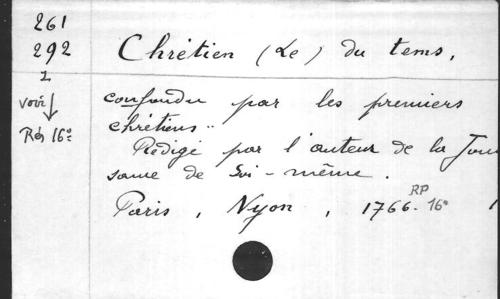 261
292
2
voir
Rés 16°
Chrétien (Le) du tems,
confondu par les premiers
chrétiens..
Rédigé par l'auteur de la Jouis
sance de soi-même.
Paris, Nyon, 1766. RP 16° 1